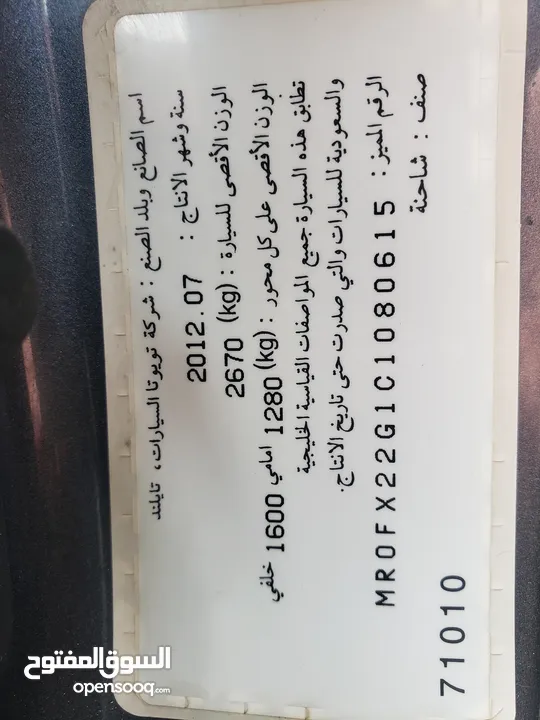 اسم الصانع وبلد الصنع : شركة تويوتا السيارات، تايلند
سنة وشهر الانتاج : 2012.07
الوزن الأقصى للسيارة : (kg) 2670
الوزن الأقصى على كل محور : (kg) 1280 امامي 1600 خلفي
تطابق هذه السيارة جميع المواصفات القياسية الخليجية
والسعودية للسيارات والتي صدرت حتى تاريخ الانتاج.
الرقم المميز : MR0FX22G1C1080615
صنف : شاحنة
71010
السوق المفتوح
opensooq.com